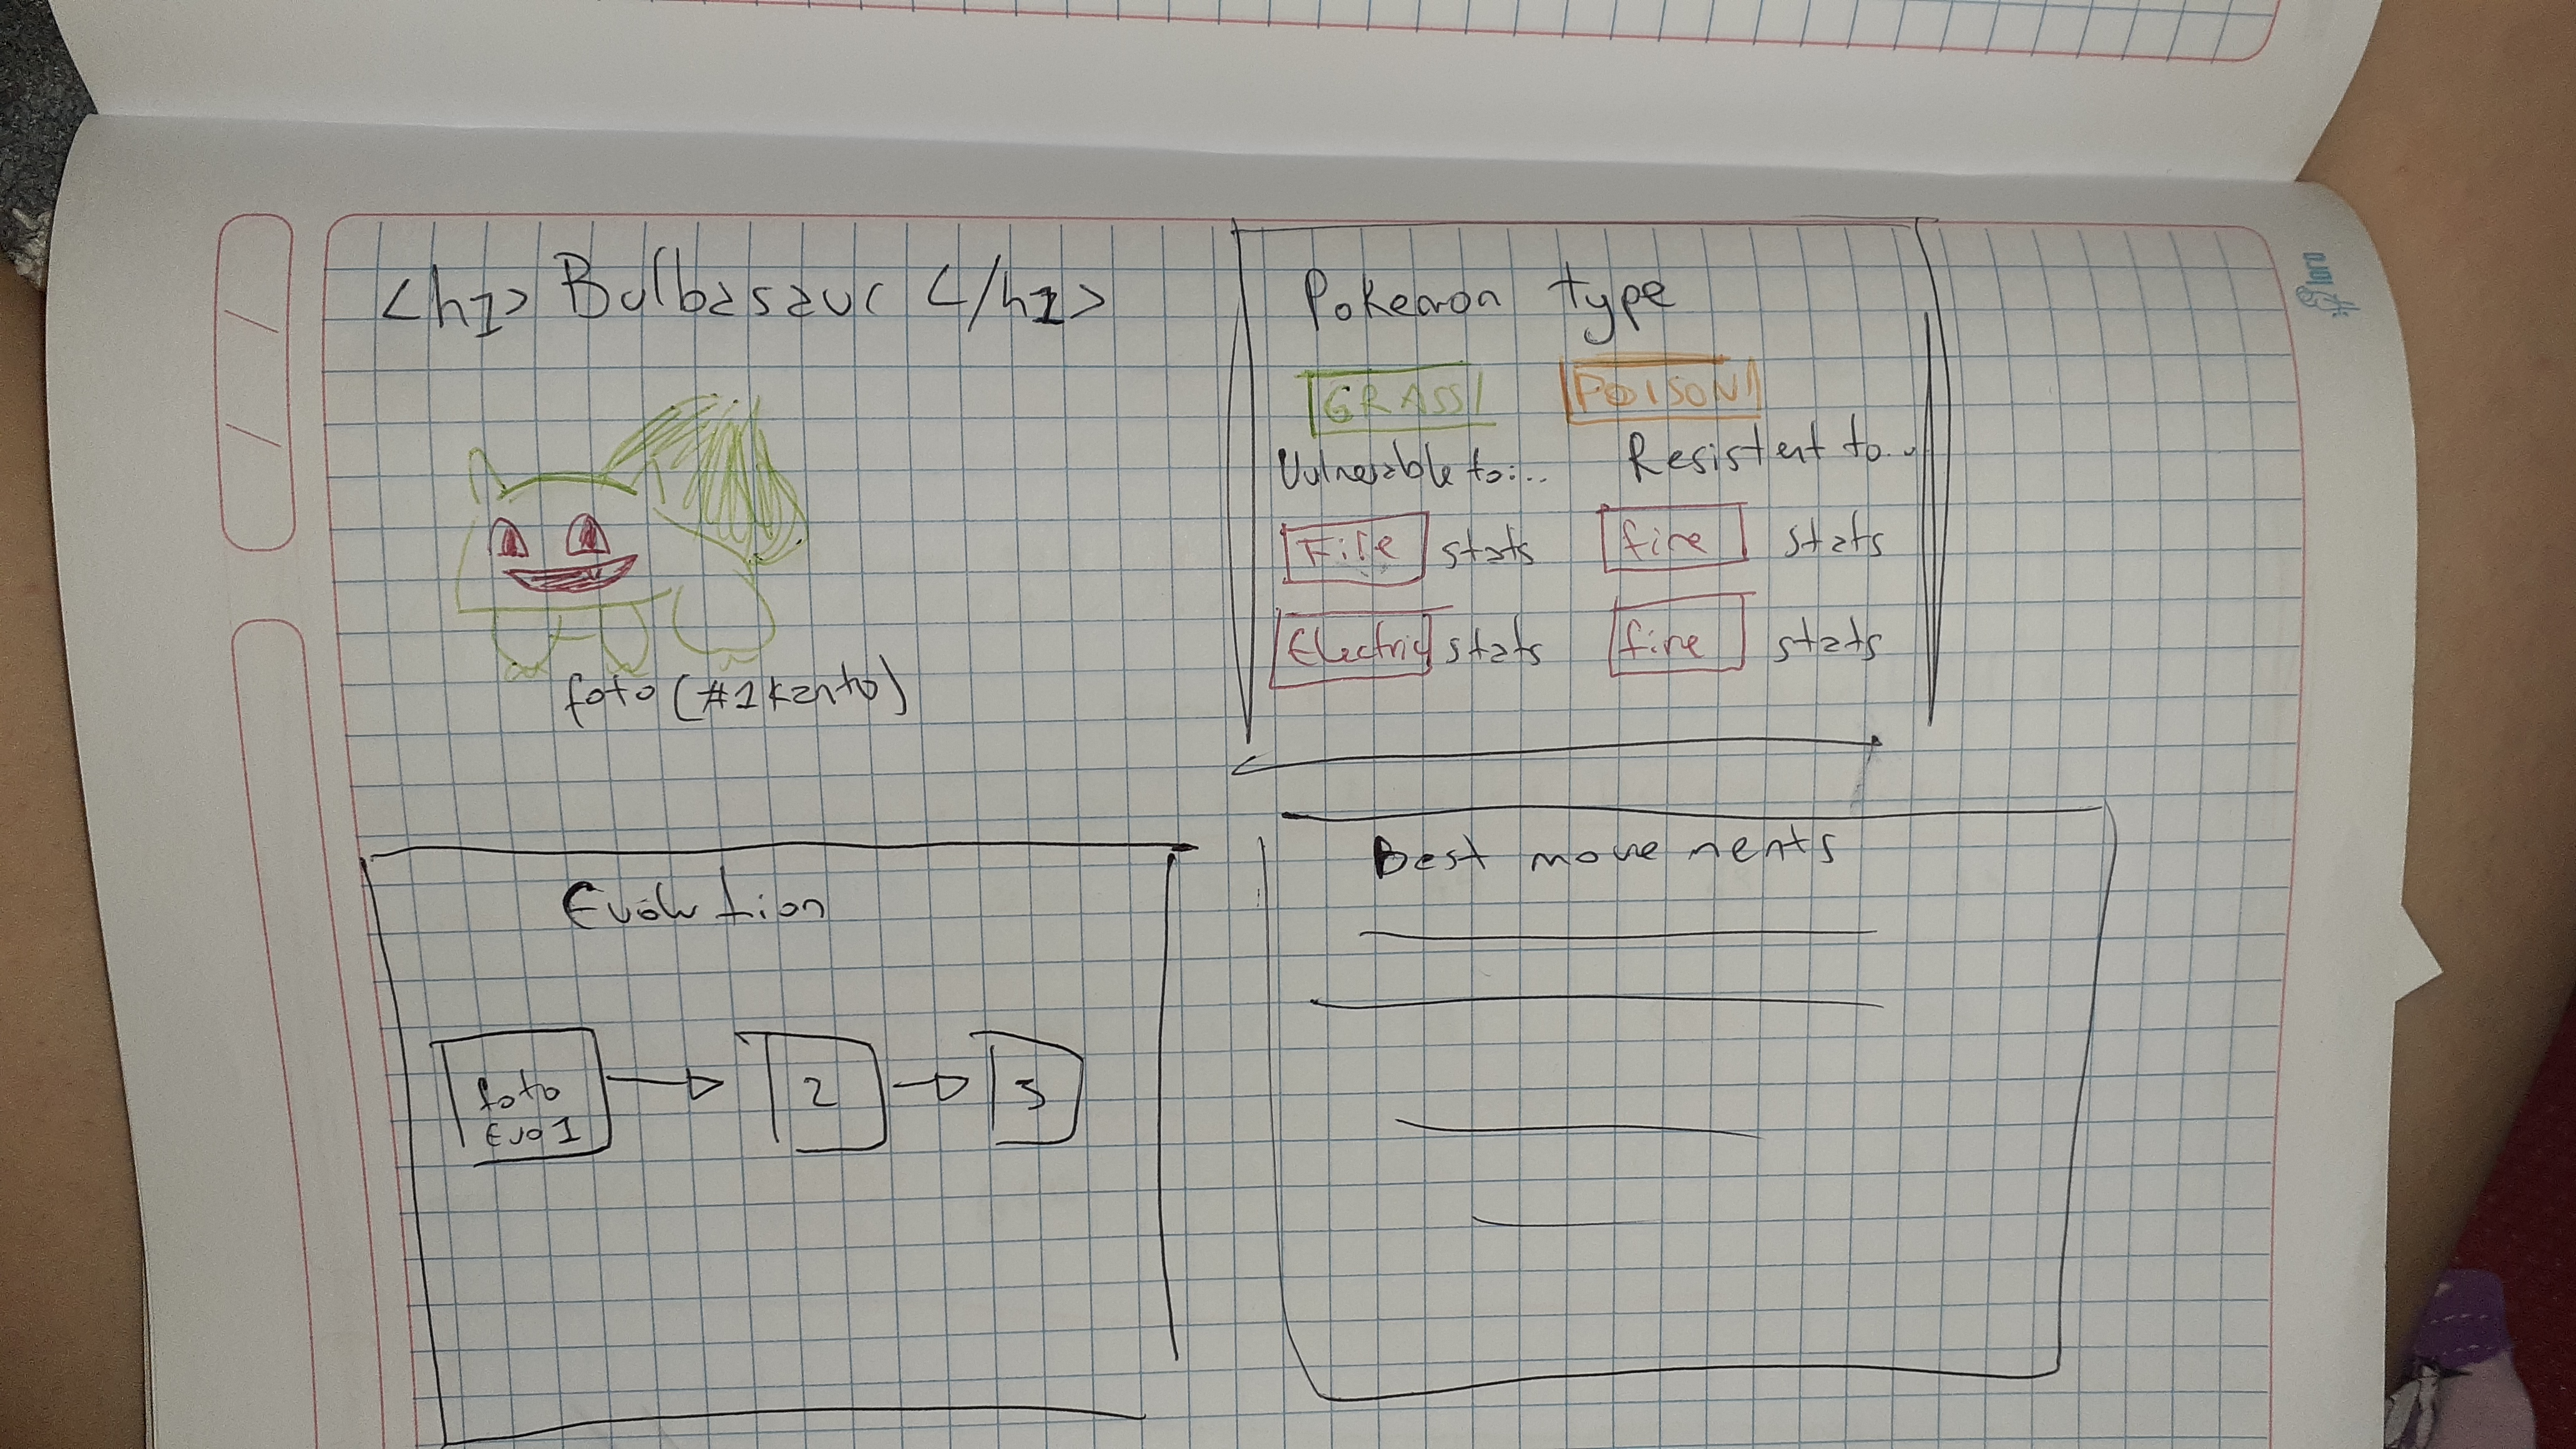 <h1> Bulbasaur </h1>
foto (#1 kanto)
Pokemon type
GRASS POISON
Vulnerable to:... Resistent to...
Fire stats fire stats
Electric stats fire stats
Evolution
foto
Evo 1
2
3
Best movements
loro